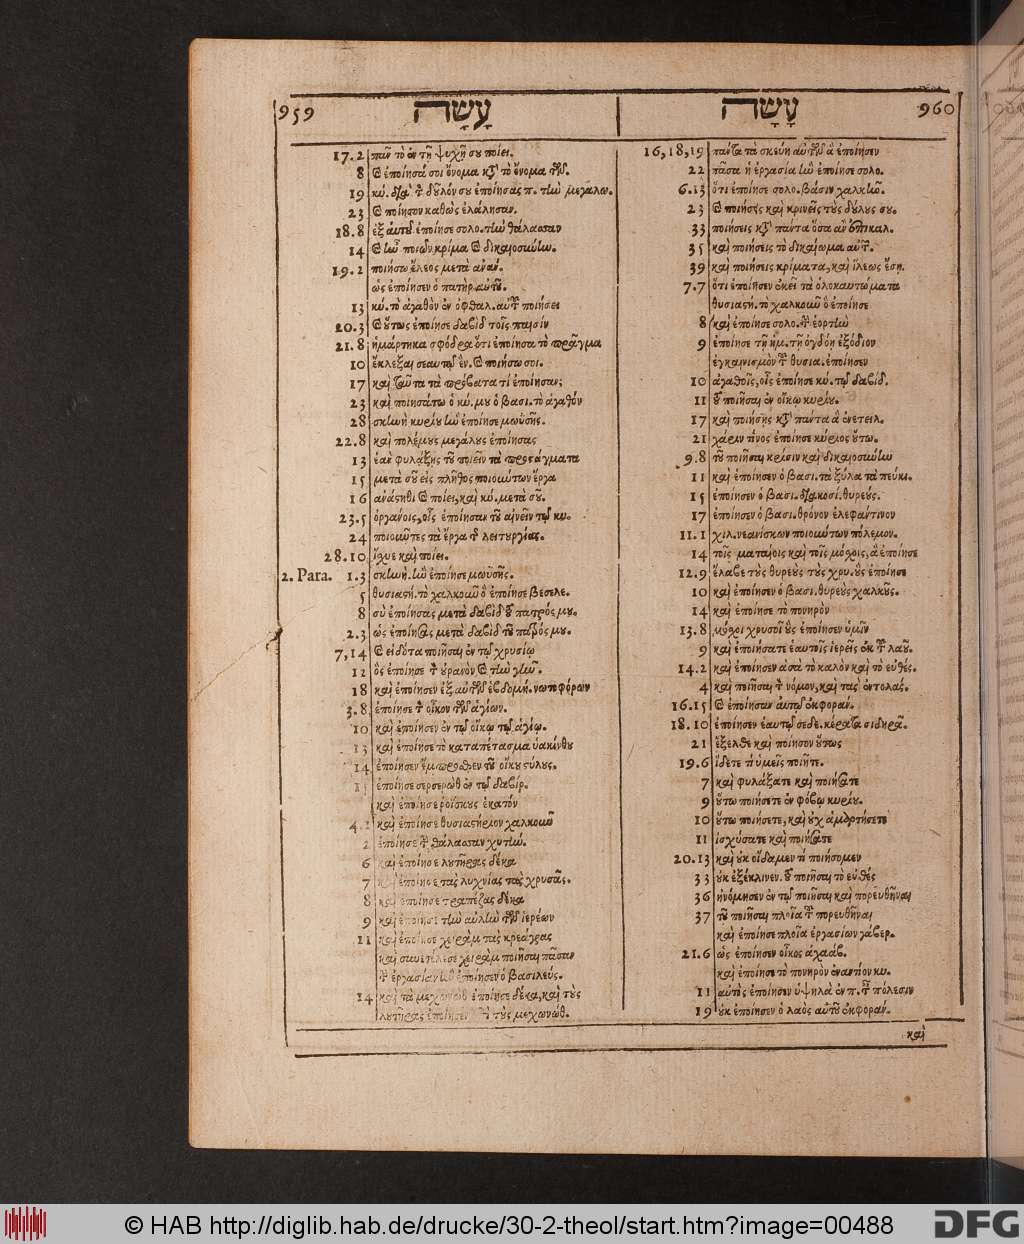 959 עָשָׂה
עָשָׂה 960
17.2 παν̃ τὸ ἐν τῇ ψυχῇ σου ποίει.
8 καὶ ἐποίησά σοι ὄνομα κατὰ τὸ ὄνομα τῶν.
19 κύ. διὰ τὸν δοῦλόν σου ἐποίησας π. τὴν μεγάλω.
23 καὶ ποίησον καθὼς ἐλάλησαν.
18.8 ἐξ αὐτοῦ ἐποίησε σολο. τὴν θάλασσαν
14 καὶ ἦν ποιῶν κρίμα καὶ δικαιοσύνην.
19.2 ποιήσω ἔλεος μετὰ ἀνάν.
ὡς ἐποίησεν ὁ πατὴρ αὐτοῦ.
13 κύ. τὸ ἀγαθὸν ἐν ὀφθαλ. αὐτοῦ ποιήσει
20.3 καὶ οὕτως ἐποίησε δαβὶδ τοῖς παισὶν
21.8 ἡμάρτηκα σφόδρα ὅτι ἐποίησα τὸ πρᾶγμα
10 ἔκλεξαι σεαυτῷ ἓν. καὶ ποιήσω σοι.
17 καὶ ταῦτα τὰ πρόβατα τί ἐποίησαν;
23 καὶ ποιησάτω ὁ κύ. μου ὁ βασι. τὸ ἀγαθόν
28 σκηνὴ κυρίου ἣν ἐποίησε μωϋσῆς.
22.8 καὶ πολέμους μεγάλους ἐποίησας
13 ἐὰν φυλάξῃς τοῦ ποιεῖν τὰ προστάγματα
15 μετὰ σοῦ εἰς πλῆθος ποιούντων ἔργα
16 ἀνάστηθι καὶ ποίει, καὶ κύ. μετὰ σοῦ.
23.5 ὀργάνοις, οἷς ἐποίησαν τοῦ αἰνεῖν τῷ κυ.
24 ποιοῦντες τὰ ἔργα τῆς λειτουργίας.
28.10 ἴσχυε καὶ ποίει.
2. Para. 1.3 σκηνή. ἣν ἐποίησε μωϋσῆς.
5 θυσιαστή. τὸ χαλκοῦν ὃ ἐποίησε βεσελε.
8 σὺ ἐποίησας μετὰ δαβὶδ τοῦ πατρός μου.
2.3 ὡς ἐποίησας μετὰ δαβὶδ τοῦ πατρός μου.
7,14 καὶ εἰδότα ποιῆσαι ἐν τῷ χρυσίῳ
12 ὃς ἐποίησε τὸν οὐρανὸν καὶ τὴν γῆν.
18 καὶ ἐποίησεν ἐξ αὐτῶν ἑβδομή. νωτοφόρων
3.8 ἐποίησε τὸν οἶκον τῶν ἁγίων.
10 καὶ ἐποίησεν ἐν τῷ οἴκῳ τῷ ἁγίῳ.
13 καὶ ἐποίησε τὸ καταπέτασμα ὑακίνθου
14 ἐποίησεν ἔμπροσθεν τοῦ οἴκου στύλους.
ἐποίησε σερσερὼθ ἐν τῷ δαβίρ.
καὶ ἐποίησε ῥοΐσκους ἑκατόν
4.1 καὶ ἐποίησε θυσιαστήριον χαλκοῦν
2 ἐποίησε τὴν θάλασσαν χυτήν.
6 καὶ ἐποίησε λουτῆρας δέκα
7 καὶ ἐποίησε τὰς λυχνίας τὰς χρυσᾶς.
8 καὶ ἐποίησε τραπέζας δέκα
9 καὶ ἐποίησε τὴν αὐλὴν τῶν ἱερέων
11 καὶ ἐποίησε χειρὰμ τὰς κρεάγρας
καὶ συνετέλεσε χειρὰμ ποιῆσαι πᾶσαν
τὴν ἐργασίαν ἣν ἐποίησεν ὁ βασιλεύς.
14 καὶ τὰ μεχωνὼθ ἐποίησε δέκα, καὶ τοὺς
λουτῆρας ἐποίησεν ἐπὶ τοὺς μεχωνώθ.
16,18,19 πάντα τὰ σκεύη αὐτῶν ἃ ἐποίησεν
22 πᾶσα ἡ ἐργασία ἣν ἐποίησε σολο.
6.13 ὅτι ἐποίησε σολο. βάσιν χαλκῆν.
23 καὶ ποιήσεις καὶ κρινεῖς τοὺς δούλους σου.
33 ποιήσεις κατὰ πάντα ὅσα ἂν ἐπικαλ.
35 καὶ ποιήσεις τὸ δικαίωμα αὐτῶν.
39 καὶ ποιήσεις κρίματα, καὶ ἵλεως ἔσῃ.
7.7 ὅτι ἐποίησεν ἐκεῖ τὰ ὁλοκαυτώματα
θυσιαστή. τὸ χαλκοῦν ὃ ἐποίησε
8 καὶ ἐποίησε σολο. τὴν ἑορτὴν
9 ἐποίησε τῇ ἡμ. τῇ ὀγδόῃ ἐξόδιον
ἐγκαινισμὸν τοῦ θυσια. ἐποίησεν
10 ἀγαθοῖς, οἷς ἐποίησε κύ. τῷ δαβίδ.
11 τοῦ ποιῆσαι ἐν οἴκῳ κυρίου.
17 καὶ ποιήσῃς κατὰ πάντα ἃ ἐνετειλ.
21 χάριν τίνος ἐποίησε κύριος οὕτω.
9.8 τοῦ ποιῆσαι κρίσιν καὶ δικαιοσύνην
11 καὶ ἐποίησεν ὁ βασι. τὰ ξύλα τὰ πεύκι.
15 ἐποίησεν ὁ βασι. διακοσί. θυρεούς.
17 ἐποίησεν ὁ βασι. θρόνον ἐλεφάντινον
11.1 χιλ. νεανίσκων ποιούντων πόλεμον.
14 τοῖς ματαίοις καὶ τοῖς μόσχοις, ἃ ἐποίησε
12.9 ἔλαβε τοὺς θυρεοὺς τοὺς χρυ. οὓς ἐποίησε
10 καὶ ἐποίησεν ὁ βασι. θυρεοὺς χαλκοῦς.
14 καὶ ἐποίησε τὸ πονηρὸν
13.8 μόσχοι χρυσοῖ οὓς ἐποίησεν ὑμῖν
9 καὶ ἐποιήσατε ἑαυτοῖς ἱερεῖς ἐκ τοῦ λαοῦ.
14.2 καὶ ἐποίησεν ἀσὰ τὸ καλὸν καὶ τὸ εὐθές.
4 καὶ ποιῆσαι τὸν νόμον, καὶ τὰς ἐντολάς.
16.15 καὶ ἐποίησαν αὐτῷ ἐκφοράν.
18.10 ἐποίησεν ἑαυτῷ σεδε. κέρατα σιδηρᾶ.
21 ἔξελθε καὶ ποίησον οὕτως
19.6 ἴδετε τί ὑμεῖς ποιῆτε.
7 καὶ φυλάξατε καὶ ποιήσατε
9 οὕτω ποιήσετε ἐν φόβῳ κυρίου.
10 οὕτω ποιήσετε, καὶ οὐχ ἁμαρτήσετε
11 ἰσχύσατε καὶ ποιήσατε
20.13 καὶ οὐκ οἴδαμεν τί ποιήσομεν
33 οὐκ ἐξέκλινεν. τοῦ ποιῆσαι τὸ εὐθές
36 ἠνόμησεν ἐν τῷ ποιῆσαι καὶ πορευθῆναι
37 τοῦ ποιῆσαι πλοῖα τοῦ πορευθῆναι
καὶ ἐποίησε πλοῖα ἐργασίων γάβερ.
21.6 ὡς ἐποίησεν οἶκος ἀχαάβ.
καὶ ἐποίησε τὸ πονηρὸν ἐναντίον κυ.
11 αὐτὸς ἐποίησεν ὑψηλὰ ἐν π. τῶν πόλεσιν
19 οὐκ ἐποίησεν ὁ λαὸς αὐτοῦ ἐκφοράν.
καὶ
© HAB http://diglib.hab.de/drucke/30-2-theol/start.htm?image=00488
DFG